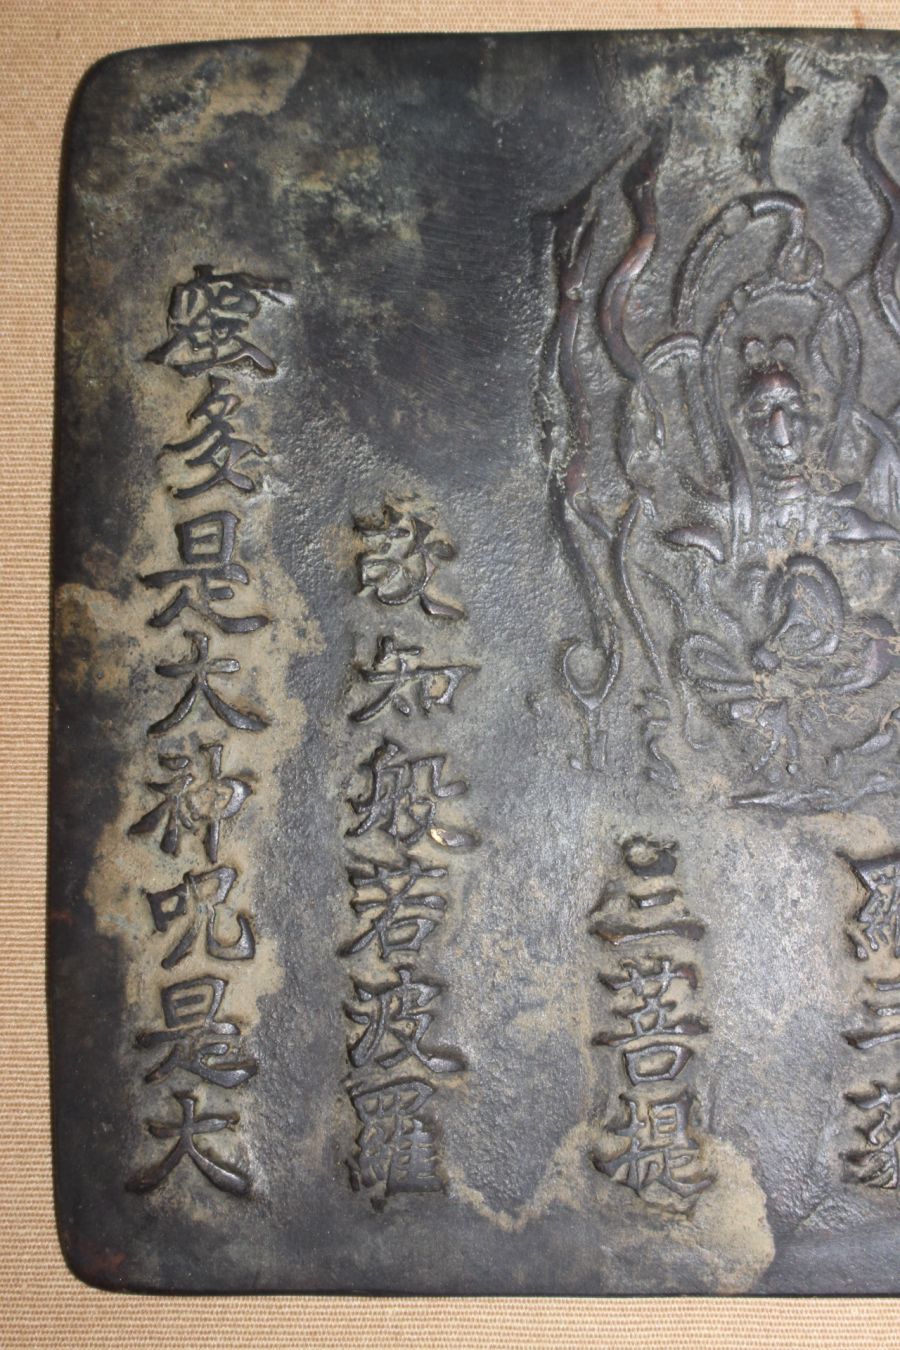 羅三藐
三菩提
故知般若波羅
蜜多是大神呪是大